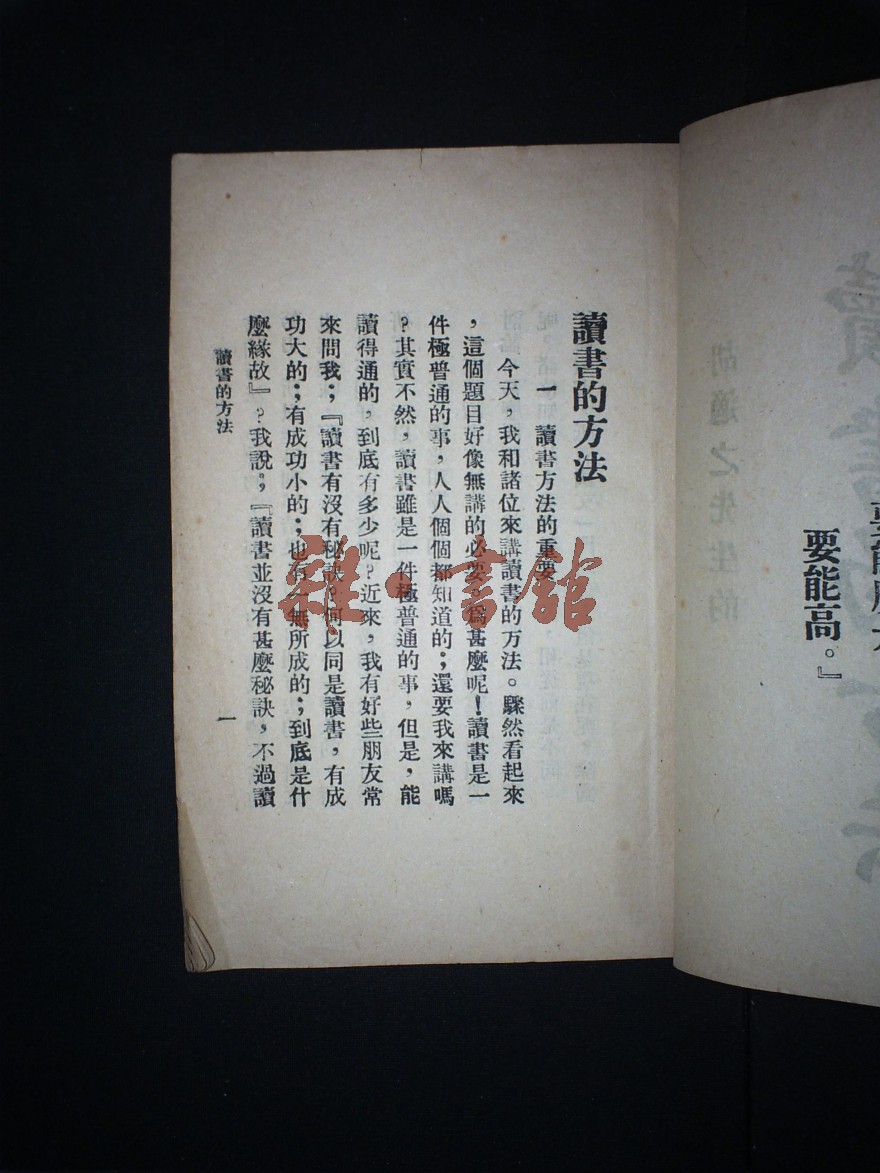 要能高。』
讀書的方法
一　讀書方法的重要
今天，我和諸位來講讀書的方法。驟然看起來
，這個題目好像無講的必要，爲甚麼呢！讀書是一
件極普通的事，人人個個都知道的；還要我來講嗎
？其實不然，讀書雖是一件極普通的事，但是，能
讀得通的，到底有多少呢？近來，我有好些朋友常
來問我；『讀書有沒有秘訣？何以同是讀書，有成
功大的；有成功小的；也有一無所成的；到底是什
麼緣故』？我說；『讀書並沒有甚麼秘訣，不過讀
讀書的方法
一
雜·書館